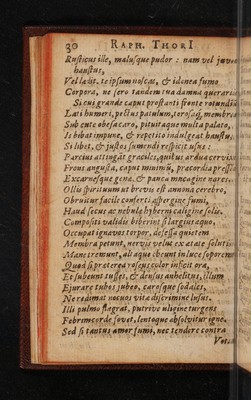 30 RAPH. THORI
Rusticus ille, malusque pudor: nam vel juvat
haustus,
Vel ladit. te ipsum noscas, & idonea fumo
Corpora, ne sero tandem tua damna queraris.
Si cui grande caput prostanti fronte rotundum
Lati humeri, pectus patulum, torosaq; membra
Sub cute obesa caro, pituitaque multa palato,
Is bibat impune, & repetito indulgeat haustu,
Si libet, & justos sumendi respicit usus:
Parcius attingat graciles, quibus ardua cervix
Frons angusta, caput minimū, pracordia pressa
Excarnesque gena, & panca meagine nares.
Olli spirituum ut brevis est annona cerebro,
Obruitur facili conferti aspergine fumi,
Haud secus ac nebula hyberni caligine solis.
Compositi validis biberint si largius aquo,
Occupat ignavos torpor, defessa quietem
Membra petunt, nervis velut ex atate solutis
Mane tremunt, alitque obeunt in luce soporem
Quod si praterea roseus color inficit ora,
Et subeunt tusses, & densus anhelitus, illum
Ejurare tubos jubeo, carosque sodales,
Ne redimat notus vita discrimine lusus.
Illi pulmo flagrat, putrive uligine turgens
Febrim corde fovet, lentoque absolvitur igne.
Sed si tantus amor fumi, nec tendere contra